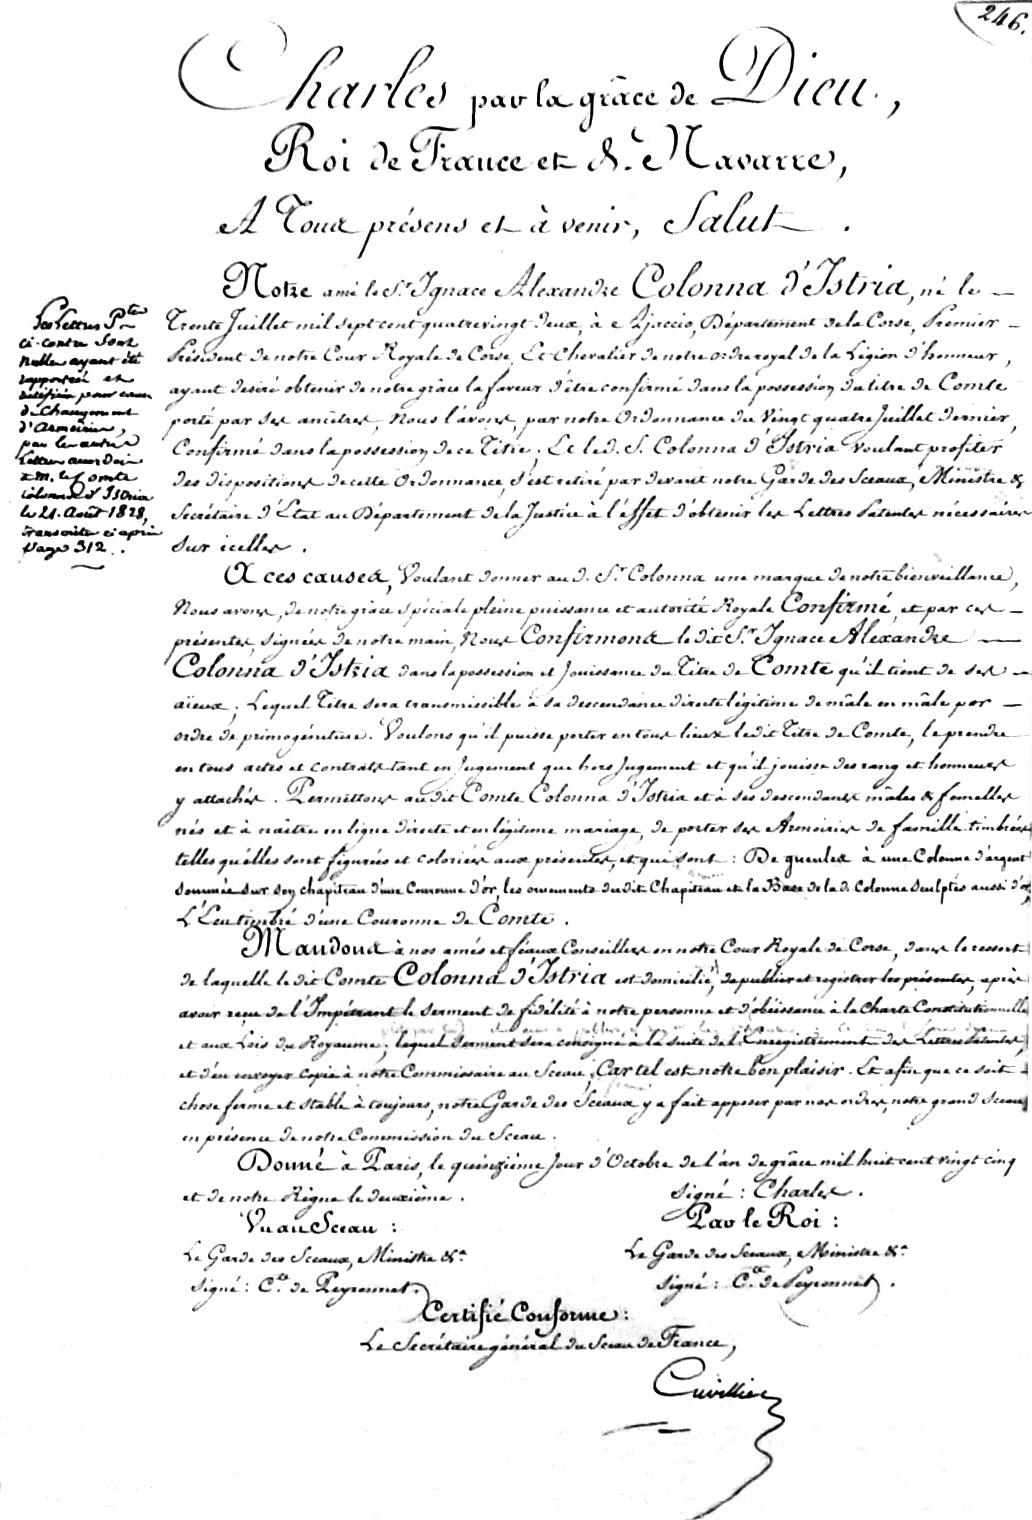 246.
Charles par la grâce de Dieu,
Roi de France et de Navarre,
A Tous présens et à venir, Salut.
Notre amé le Sr. Ignace Alexandre Colonna d'Istria, né le
Trente Juillet mil sept cent quatrevingt deux, à Ajaccio, Département de la Corse, Premier
Président de notre Cour Royale de Corse, Et Chevalier de notre ordre royal de la Légion d'honneur,
ayant desiré obtenir de notre grâce la faveur d'être confirmé dans la possession du titre de Comte
porté par ses ancêtres, Nous l'avons, par notre Ordonnance du Vingt quatre Juillet dernier,
Confirmé dans la possession de ce Titre; Et le d. S. Colonna d'Istria voulant profiter
des dispositions de cette Ordonnance, s'est retiré par devant notre Garde des Sceaux, Ministre &
Secrétaire d'Etat au Département de la Justice à l'effet d'obtenir les Lettres Patentes nécessaires
sur icelles.
Les Lettres Ptes
ci-contre sont
nulles ayant été
rapportées et
pour cause
de Changement
d'Armoiries,
par les autres
Lettres accordées
à M. le Comte
Colonna d'Istria
le 21. Août 1828,
transcrites ci après
page 312.
A ces causes, Voulant donner au d. Sr. Colonna une marque de notre bienveillance,
Nous avons, de notre grâce spéciale pleine puissance et autorité Royale Confirmé, et par ces
présentes, signées de notre main, Nous Confirmons le dit Sr. Ignace Alexandre
Colonna d'Istria dans la possession et Jouissance du Titre de Comte qu'il tient de ses
aïeux; Lequel Titre sera transmissible à sa descendance directe légitime de mâle en mâle par
ordre de primogéniture. Voulons qu'il puisse porter en tous lieux le dit Titre de Comte, le prendre
en tous actes et contrats tant en Jugement que hors Jugement et qu'il jouisse des rang et honneurs
y attachés. Permettons au dit Comte Colonna d'Istria et à ses descendants mâles & femelles
nés et à naître en ligne directe et en légitime mariage, de porter ses Armoiries de famille timbrées
telles qu'elles sont figurées et coloriées aux présentes, et qui sont: De gueules à une Colonne d'argent
sommée sur son chapiteau d'une Couronne d'or, les ornements du dit Chapiteau et la Base de la d. Colonne sculptés aussi d'or,
L'Ecu timbré d'une Couronne de Comte.
Mandons à nos amés et féaux Conseillers en notre Cour Royale de Corse, dans le ressort
de laquelle le dit Comte Colonna d'Istria est domicilié, de publier et registrer les présentes, après
avoir reçu de l'Impétrant le serment de fidélité à notre personne et d'obéissance à la Charte Constitutionnelle
et aux Lois du Royaume; lequel serment sera consigné à la suite de l'Enregistrement des Lettres Patentes,
et d'en envoyer copie à notre Commissaire au Sceau; Car tel est notre bon plaisir. Et afin que ce soit
chose ferme et stable à toujours, notre Garde des Sceaux y a fait apposer par nos ordres, notre grand Sceau
en présence de notre Commission du Sceau.
Donné à Paris, le quinzième Jour d'Octobre de l'an de grâce mil huit cent vingt cinq
et de notre Règne le deuxième.
signé: Charles.
Vu au Sceau:
Par le Roi:
Le Garde des Sceaux, Ministre &a.
Le Garde des Sceaux, Ministre &a.
signé: Cte. de Peyronnet.
signé: Cte. de Peyronnet.
Certifié Conforme:
Le Secrétaire général du Sceau de France,
Cuvillier